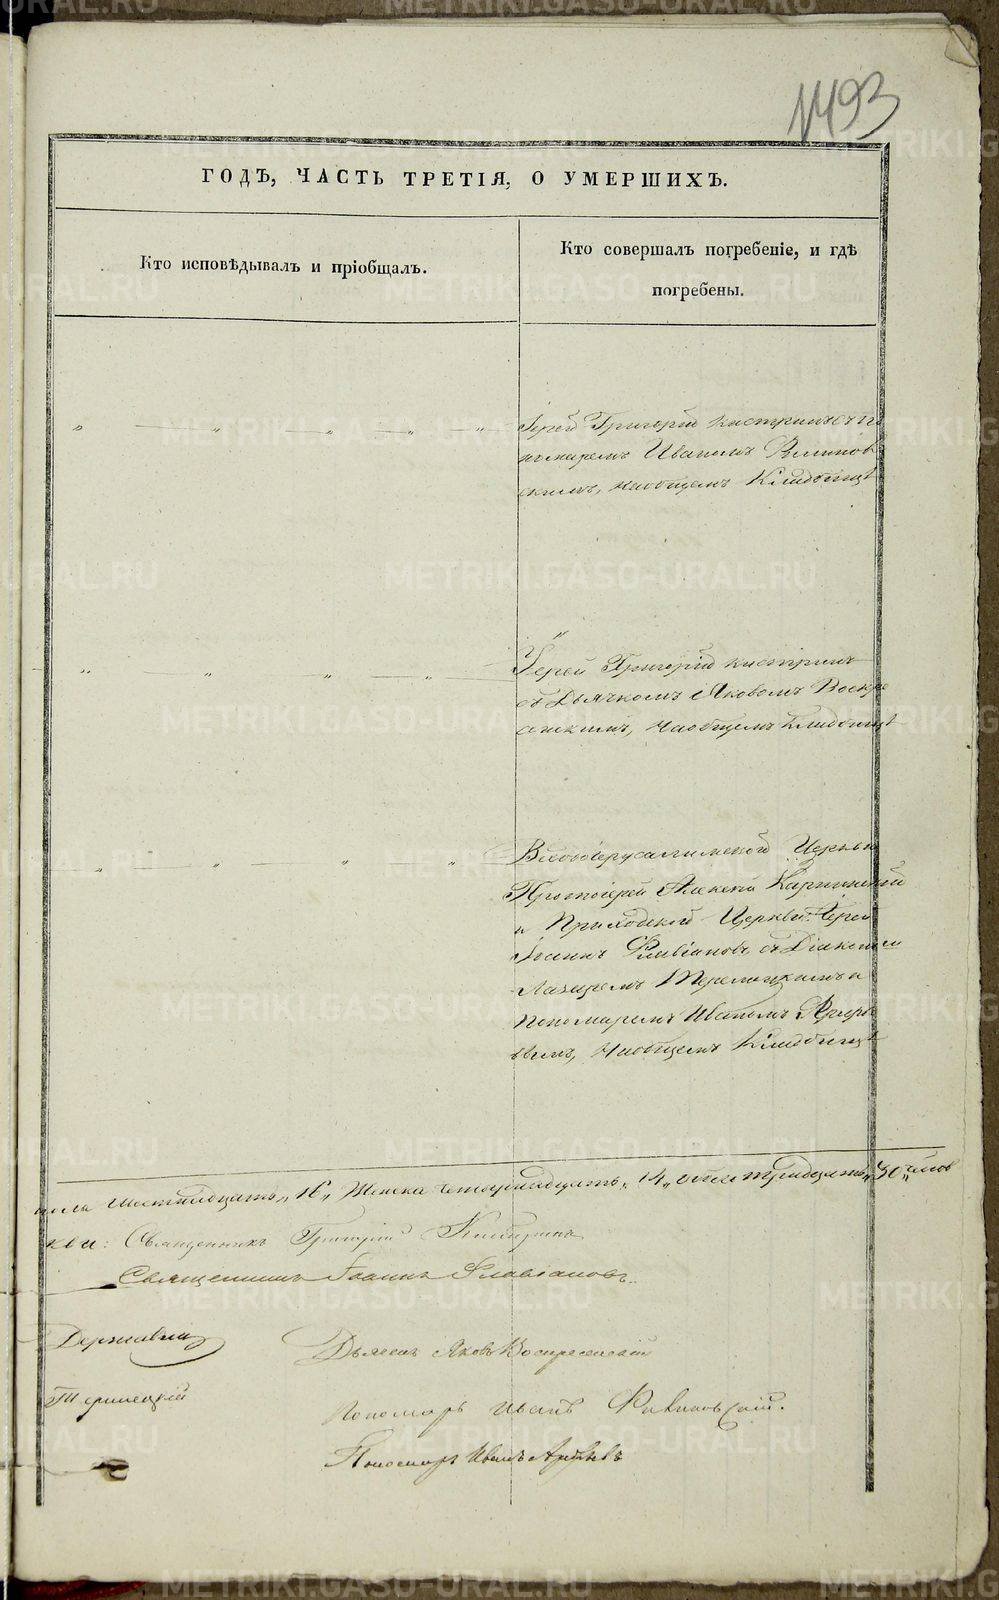 1493
ГОДЪ, ЧАСТЬ ТРЕТІЯ, О УМЕРШИХЪ.
Кто исповѣдывалъ и пріобщалъ.
Кто совершалъ погребеніе, и гдѣ
погребены.
Іерей Григорій съ по
номаремъ Иваномъ
скимъ, на общемъ Кладбищѣ
Іерей Григорій
съ Дьячкомъ Яковомъ Воскре
сенскимъ, на общемъ Кладбищѣ
Церкви
Протоіерей Алексей Карпинский
и Приходской Церкви Іерей
Іоаннъ Флавіановъ съ Діакономъ
Лазаремъ и
Пономаремъ Иваномъ
на общемъ Кладбищѣ
пола шестнадцать „16„ Женска четырнадцать „14„ обоего тридцать „30„
кви: Священникъ Григорій
Священникъ Іоаннъ Флавіановъ.
Державин
Дьячекъ Яковъ Воскресенскій
Пономарь Иванъ
Пономарь Иванъ
METRIKI.GASO-URAL.RU